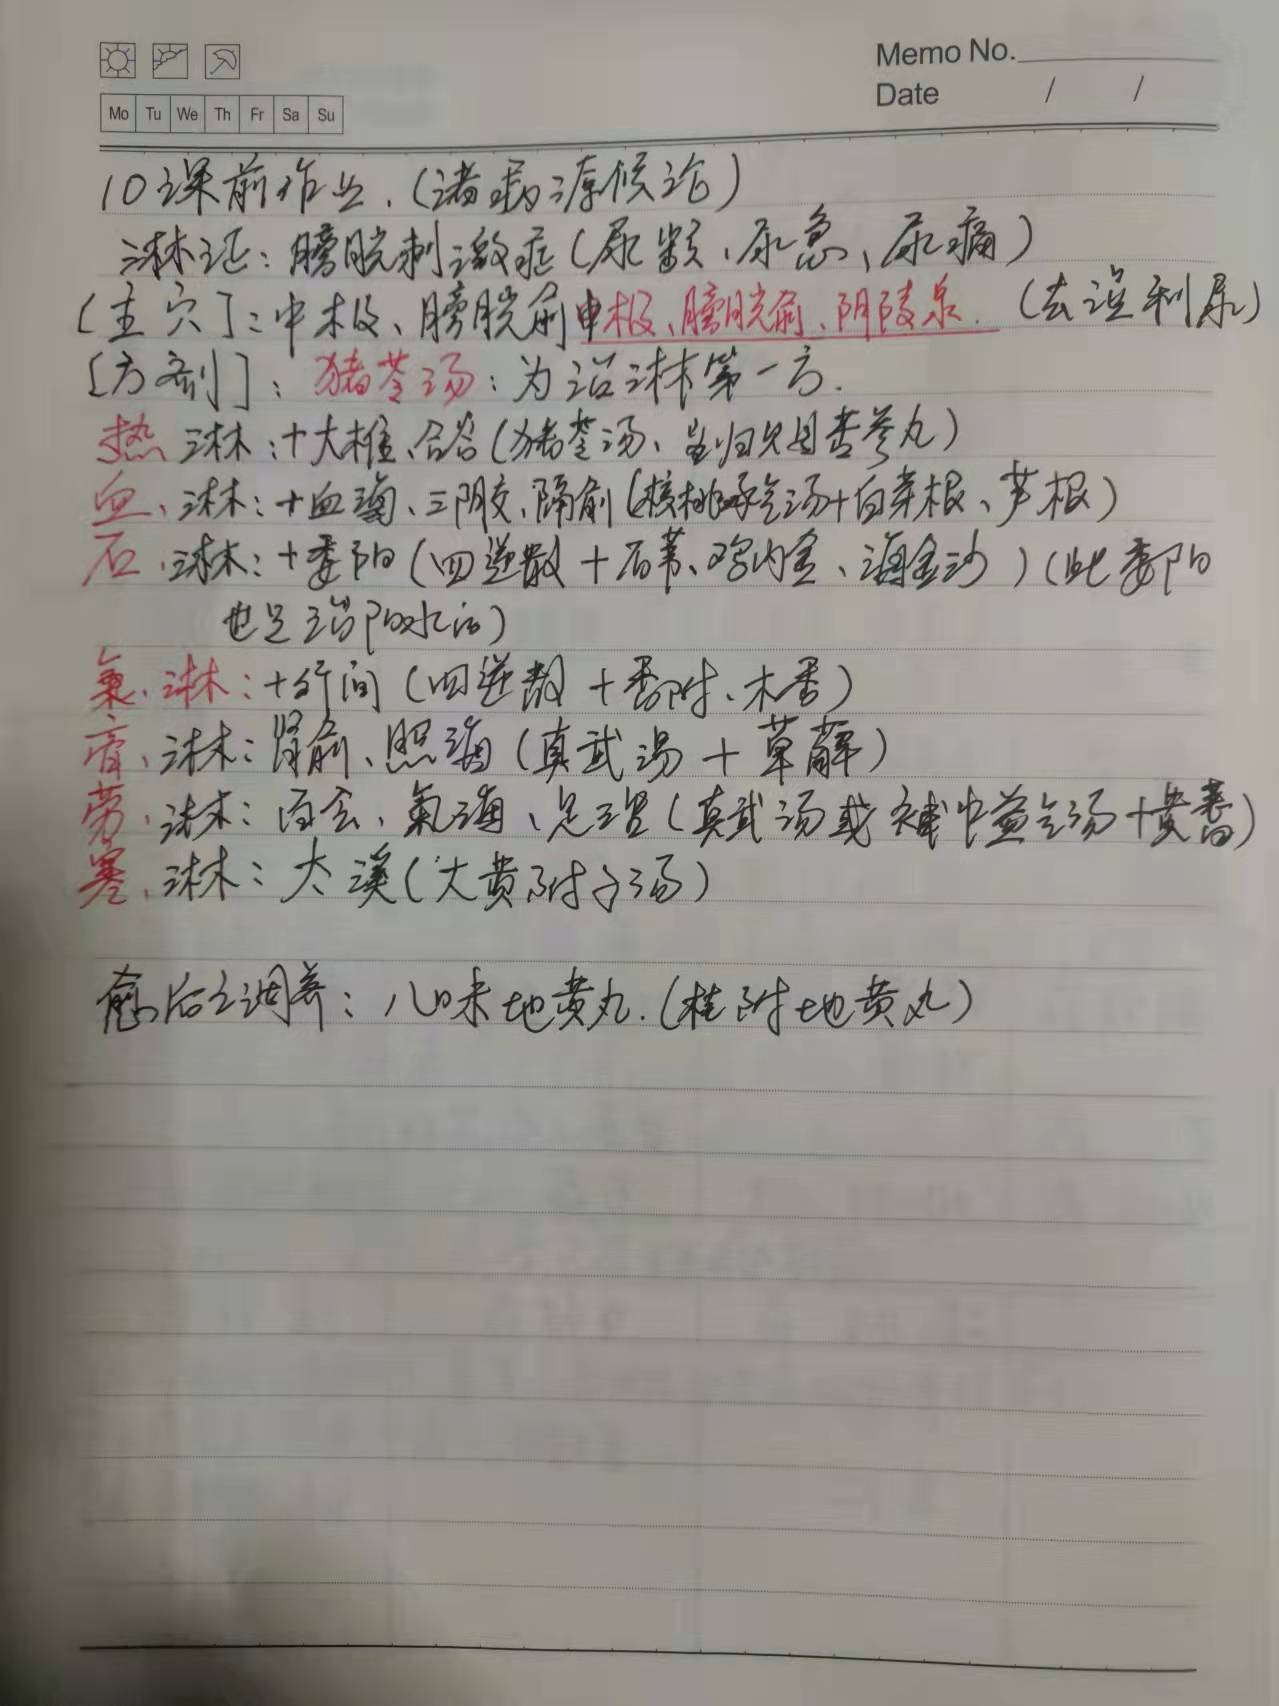 Memo No.
Mo Tu We Th Fr Sa Su
Date / /
10课前作业.(诸病源候论)
淋证:膀胱刺激症(尿频、尿急、尿痛)
[主穴]:中极、膀胱俞 中极、膀胱俞、阴陵泉.(去湿利尿)
[方剂]:猪苓汤:为治淋第一方.
热淋:+大椎、合谷(猪苓汤、当归贝母苦参丸)
血、淋:+血海、三阴交、膈俞(核桃承气汤+白茅根、芦根)
石、淋:+委阳(四逆散+石苇、鸡内金、海金沙)(此委阳
也是踹阳水穴)
氣、淋:+行间(四逆散+香附、木香)
膏、淋:肾俞、照海(真武汤+草薢)
劳、淋:百会、氣海、足三里(真武汤或补中益气汤+黄蓍)
寒、淋:太溪(大黄附子汤)
愈后之调养:八味地黄丸.(桂附地黄丸)